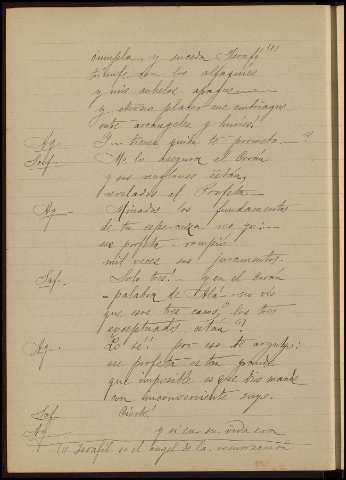 cumpla, y suceda Serafil (1)
triunfe con los alfaquies
y mis anhelos apague
y eterno placer me embriague
entre arcangeles y huries!
Ag. Y... tienes quien te prometa ... ?
Saf. Me lo asegura el Corán
y sus renglones están
revelados al Profeta.
Ag. Minados los fundamentos
de tu esperanza
su profeta rompió
mil veces sus juramentos.
Saf. Solo tres! y en el Corán
palabra de Alá no vés
que esos tres casos, los tres
exceptuados están?
Ag. Lo sé! por eso te arguyo;
ese profeta es tan grande
que imposible es que dios mande
con inconveniente suyo.
Saf.
Ag. y si en su vida con
(1) Serafil es el angel de la resurrección